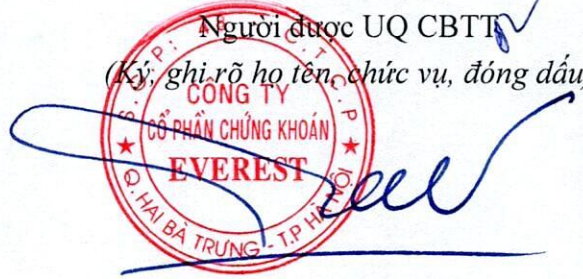 Người được UQ CBTT
(Ký, ghi rõ họ tên, chức vụ, đóng dấu
CÔNG TY
CỔ PHẦN CHỨNG KHOÁN
EVEREST
Q. HAI BÀ TRƯNG - T.P HÀ NỘI